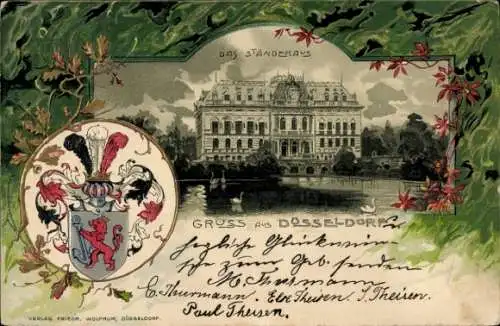 DAS STÄNDEHAUS
GRUSS AUS DÜSSELDORF
Herzliche Glückwün-
sche zum Geb. senden
M. Thurmann
E. Thurmann, Else Theisen, J. Theisen.
Paul Theisen.
VERLAG FRIEDR. WOLFRUM, DÜSSELDORF.